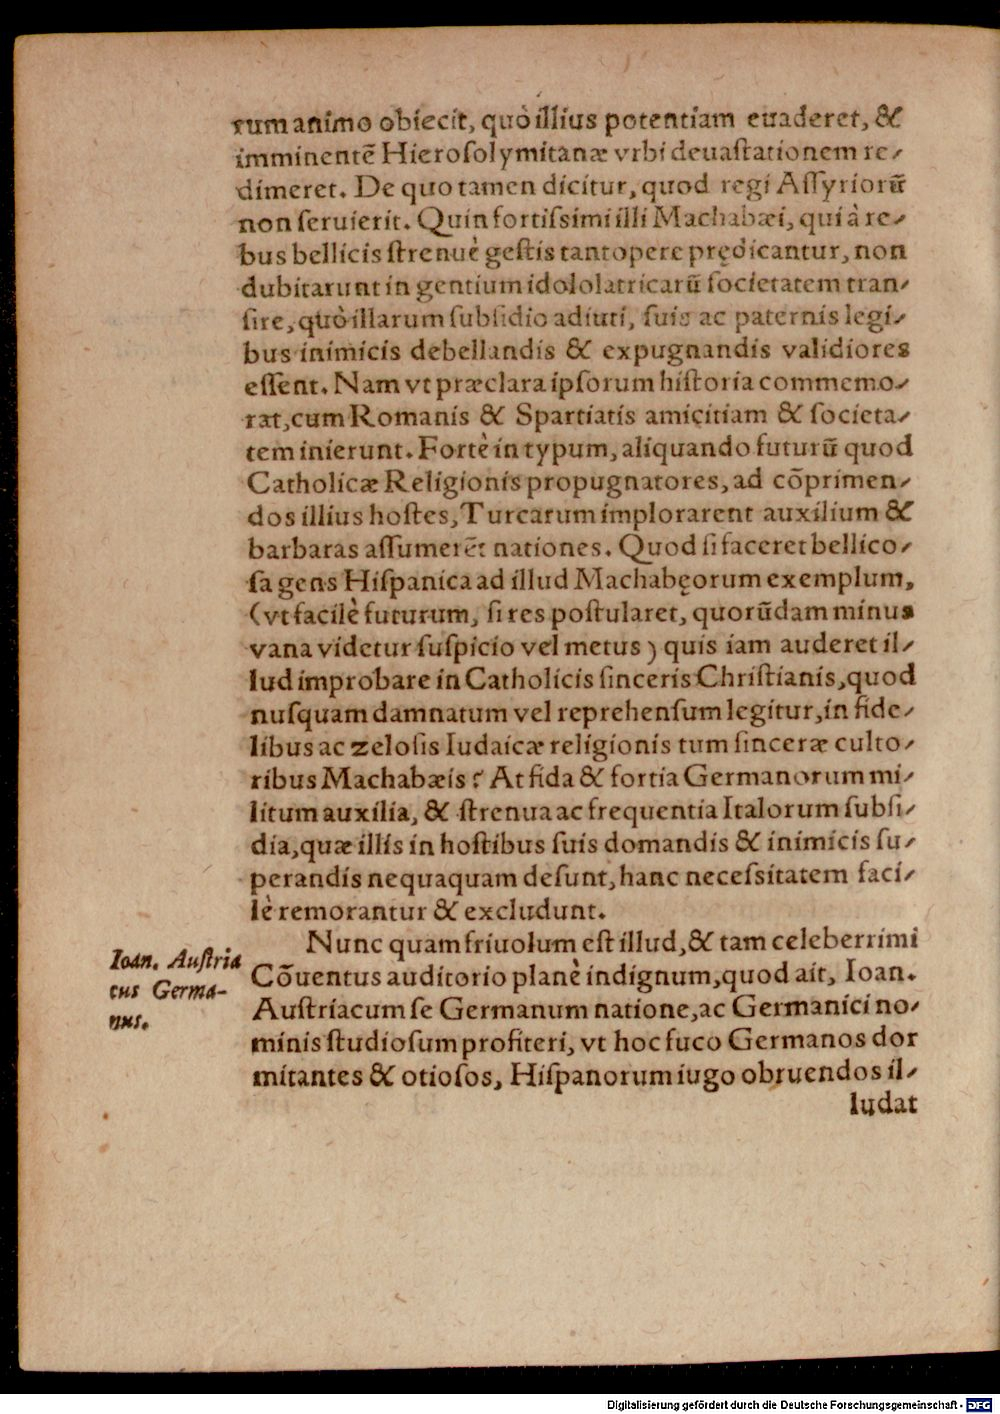 rum animo obiecit, quò illius potentiam euaderet, &
imminentẽ Hierosolymitanæ vrbi deuastationem re-
dimeret. De quo tamen dicitur, quod regi Assyriorũ
non seruierit. Quin fortissimi illi Machabæi, qui à re-
bus bellicis strenuè gestis tantopere prędicantur, non
dubitarunt in gentium idololatricarũ societatem tran-
sire, quò illarum subsidio adiuti, suis ac paternis legi-
bus inimicis debellandis & expugnandis validiores
essent. Nam vt præclara ipsorum historia commemo-
rat, cum Romanis & Spartiatis amicitiam & societa-
tem inierunt. Fortè in typum, aliquando futurũ quod
Catholicæ Religionis propugnatores, ad cõprimen-
dos illius hostes, Turcarum implorarent auxilium &
barbaras assumerẽt nationes. Quod si faceret bellico-
sa gens Hispanica ad illud Machabęorum exemplum,
(vt facilè futurum, si res postularet, quorũdam minus
vana videtur suspicio vel metus) quis iam auderet il-
lud improbare in Catholicis sinceris Christianis, quod
nusquam damnatum vel reprehensum legitur, in fide-
libus ac zelosis Iudaicæ religionis tum sinceræ culto-
ribus Machabæis? At fida & fortia Germanorum mi-
litum auxilia, & strenua ac frequentia Italorum subsi-
dia, quæ illis in hostibus suis domandis & inimicis su-
perandis nequaquam desunt, hanc necessitatem faci-
lè remorantur & excludunt.
Nunc quam friuolum est illud, & tam celeberrimi
Ioan. Austria
cus Germa-
nus.
Cõuentus auditorio planè indignum, quod ait, Ioan.
Austriacum se Germanum natione, ac Germanici no-
minis studiosum profiteri, vt hoc fuco Germanos dor
mitantes & otiosos, Hispanorum iugo obruendos il-
ludat
Digitalisierung gefördert durch die Deutsche Forschungsgemeinschaft - DFG